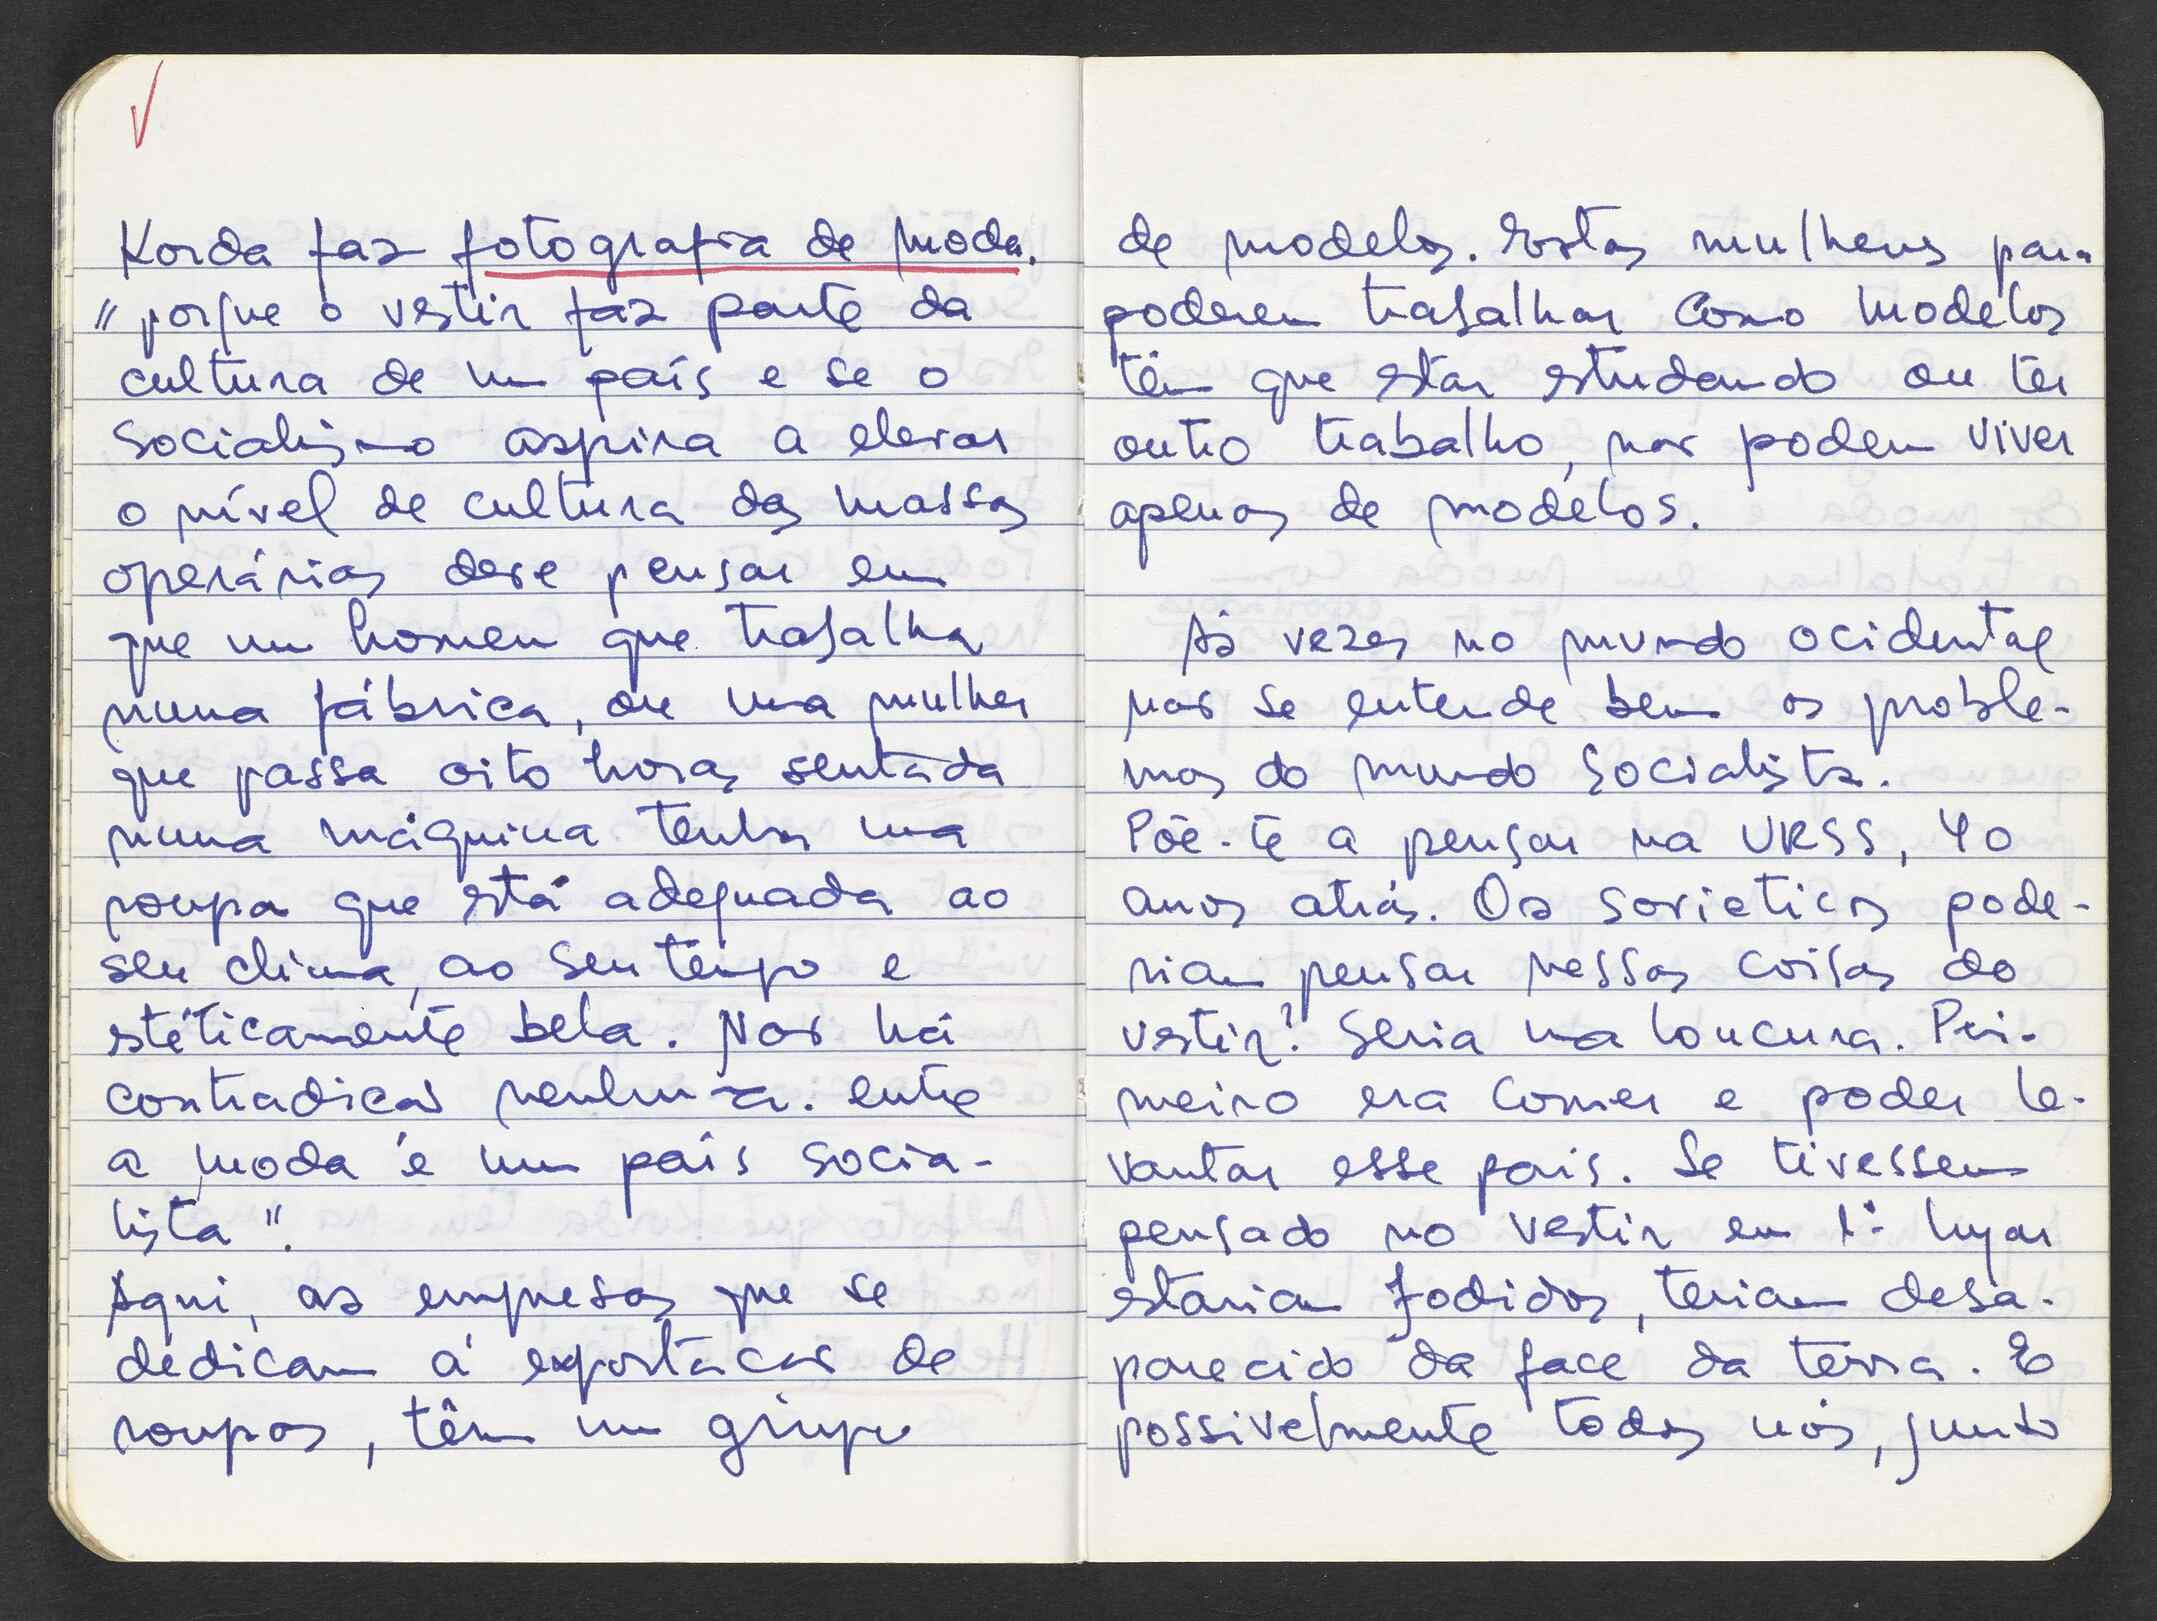 Korda faz fotografia de moda.
"porque o vestir faz parte da
cultura de um país e se o
socialismo aspira a elevar
o nível de cultura das massas
operárias deve pensar em
que um homem que trabalha
numa fábrica, ou uma mulher
que passa oito horas sentada
numa máquina tenha uma
roupa que está adequada ao
seu clima, ao seu tempo e
estéticamente bela. Não há
contradição nenhuma. entre
a moda e um país socia-
lista".
Aqui, as empresas que se
dedicam á exportação de
roupas, têm um grupo
de modelos. Estas mulheres para
poderem trabalhar como modelos
têm que estar estudando ou ter
outro trabalho, não podem viver
apenas de modelos.
Às vezes no mundo ocidental
não se entende bem os proble-
mas do mundo socialista.
Põe-te a pensar na URSS, 40
anos atrás. Os sovieticos pode-
riam pensar nessas coisas do
vestir? Seria uma loucura. Pri-
meiro era comer e poder le-
vantar esse pais. Se tivessem
pensado no vestir em 1º lugar
estariam fodidos, teriam desa-
parecido da face da terra. E
possivelmente todos nós, junto